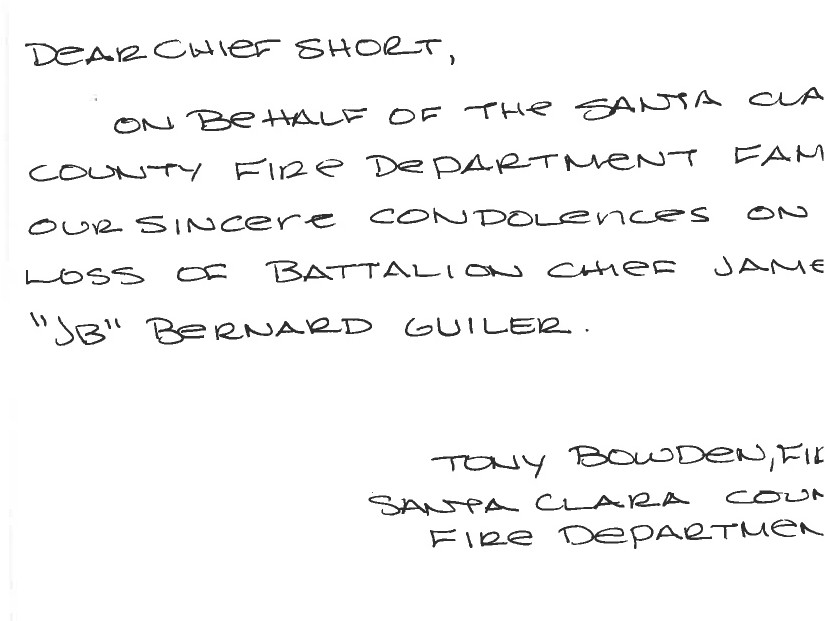 DEAR CHIEF SHORT,
ON BEHALF OF THE SANTA CLA
COUNTY FIRE DEPARTMENT FAM
OUR SINCERE CONDOLENCES ON
LOSS OF BATTALION CHIEF JAME
"JB" BERNARD GUILER.
TONY BOWDEN, FI
SANTA CLARA COUN
FIRE DEPARTMEN